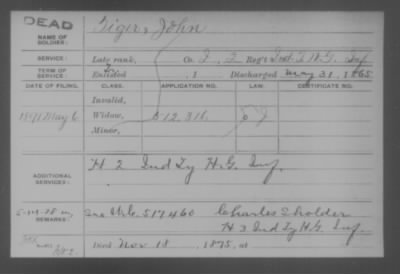 DEAD
NAME OF SOLDIER: Tiger, John
SERVICE: Late rank, Co. I, 2 Reg't Ind. T. H.G. Inf.
TERM OF SERVICE: Enlisted , 1 Discharged May 31, 1865
DATE OF FILING. CLASS. APPLICATION NO. LAW. CERTIFICATE NO.
Invalid,
May 6 Widow, 512.316
Minor,
ADDITIONAL SERVICES: H 2 Ind Ty H.G. Inf.
REMARKS: See 517460 Charles S holder
H 3 Ind Ty H.G. Inf.
Died Nov 18, 1875, at